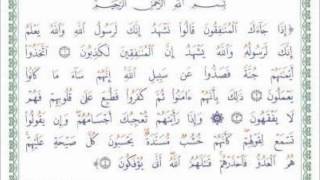 بِسْمِ اللَّهِ الرَّحْمَٰنِ الرَّحِيمِ
إِذَا جَاءَكَ الْمُنَافِقُونَ قَالُوا نَشْهَدُ إِنَّكَ لَرَسُولُ اللَّهِ وَاللَّهُ يَعْلَمُ
إِنَّكَ لَرَسُولُهُ وَاللَّهُ يَشْهَدُ إِنَّ الْمُنَافِقِينَ لَكَاذِبُونَ ۝ اتَّخَذُوا
أَيْمَانَهُمْ جُنَّةً فَصَدُّوا عَن سَبِيلِ اللَّهِ إِنَّهُمْ سَاءَ مَا كَانُوا
يَعْمَلُونَ ۝ ذَٰلِكَ بِأَنَّهُمْ ءَامَنُوا ثُمَّ كَفَرُوا فَطُبِعَ عَلَىٰ قُلُوبِهِمْ فَهُمْ
لَا يَفْقَهُونَ ۝ وَإِذَا رَأَيْتَهُمْ تُعْجِبُكَ أَجْسَامُهُمْ وَإِن يَقُولُوا
تَسْمَعْ لِقَوْلِهِمْ كَأَنَّهُمْ خُشُبٌ مُّسَنَّدَةٌ يَحْسَبُونَ كُلَّ صَيْحَةٍ عَلَيْهِمْ
هُمُ الْعَدُوُّ فَاحْذَرْهُمْ قَاتَلَهُمُ اللَّهُ أَنَّىٰ يُؤْفَكُونَ ۝